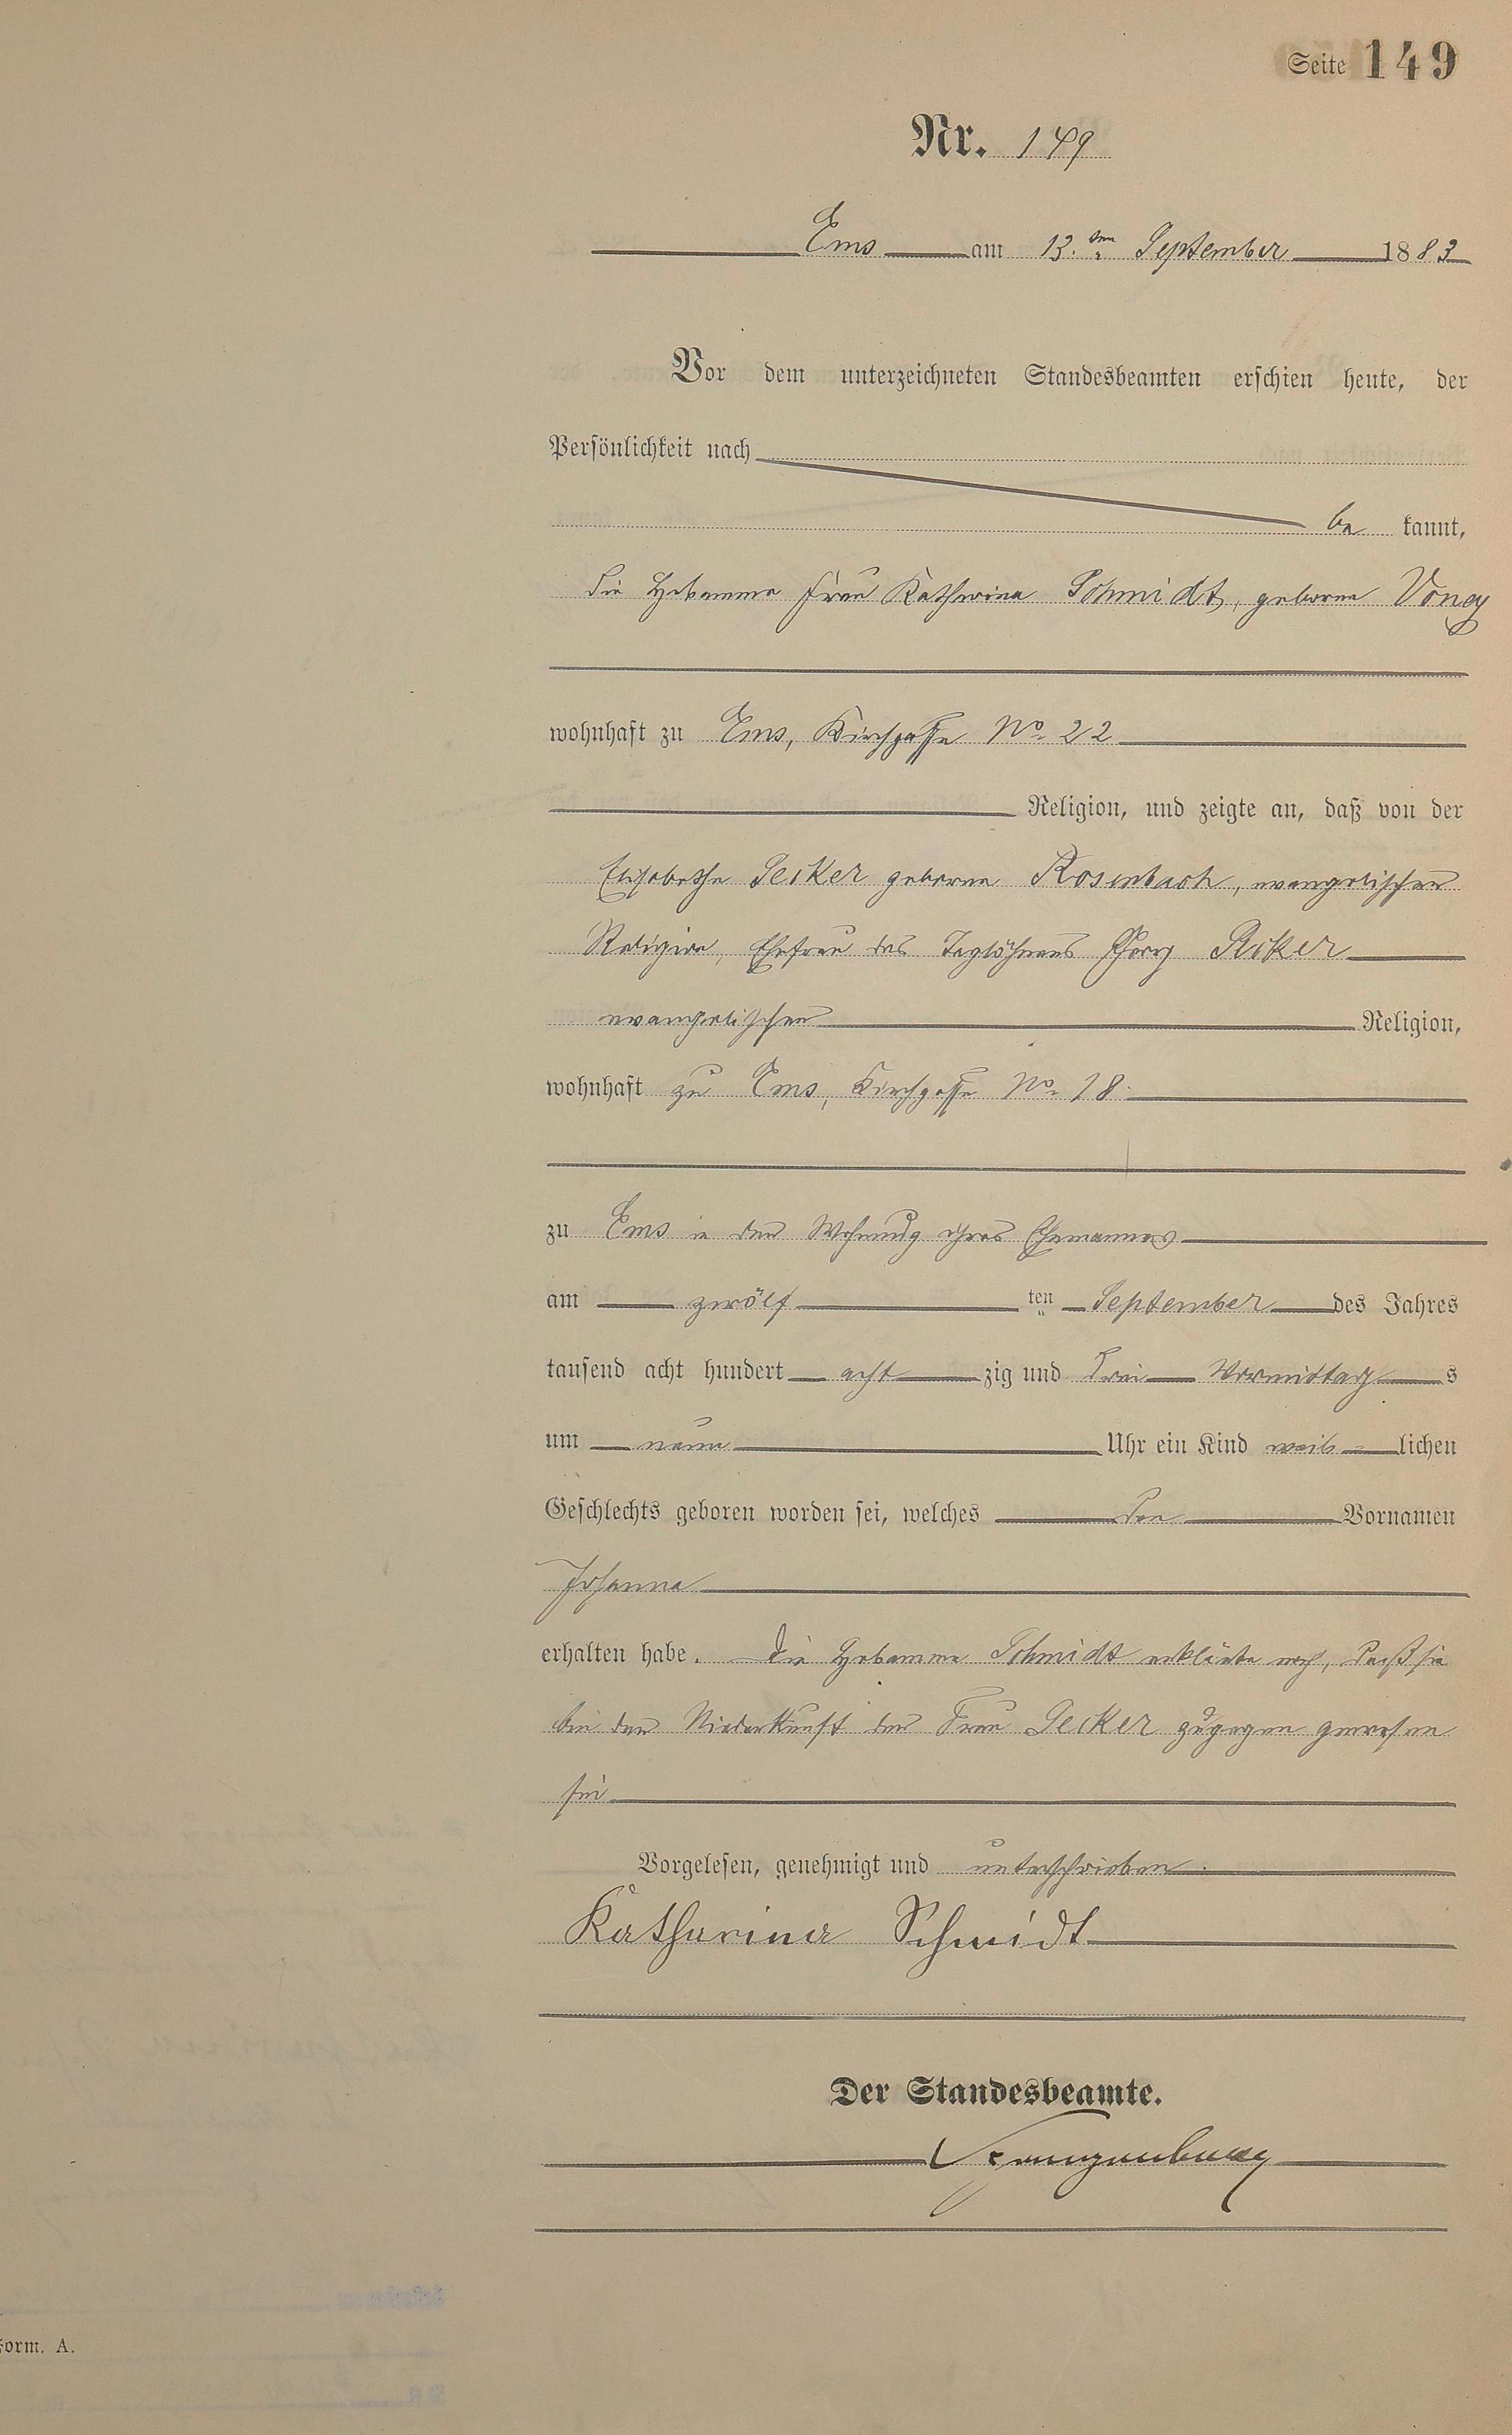 Seite 149
Nr. 149
Ems am 13.ten September 1883
Vor dem unterzeichneten Standesbeamten erschien heute, der
Persönlichkeit nach
be kannt,
die Hebamme Frau Katharina Schmidt, geborne
wohnhaft zu Ems, Kirchgasse No. 22
Religion, und zeigte an, daß von der
Elisabethe geborne Rosenbach, evangelischer
Religion, Ehefrau des Taglöhners Georg
evangelischer Religion,
wohnhaft zu Ems, Kirchgasse No. 18.
zu Ems in der Wohnung ihres Ehemannes
am zwölf ten September des Jahres
tausend acht hundert acht zig und drei Vormittag s
um neun Uhr ein Kind weib lichen
Geschlechts geboren worden sei, welches den Vornamen
Johanna
erhalten habe. Die Hebamme Schmidt erklärte noch, daß sie
bei der Niederkunft der Frau zugegen gewesen
sei
Vorgelesen, genehmigt und unterschrieben.
Katharina Schmidt
Der Standesbeamte.
Form. A.